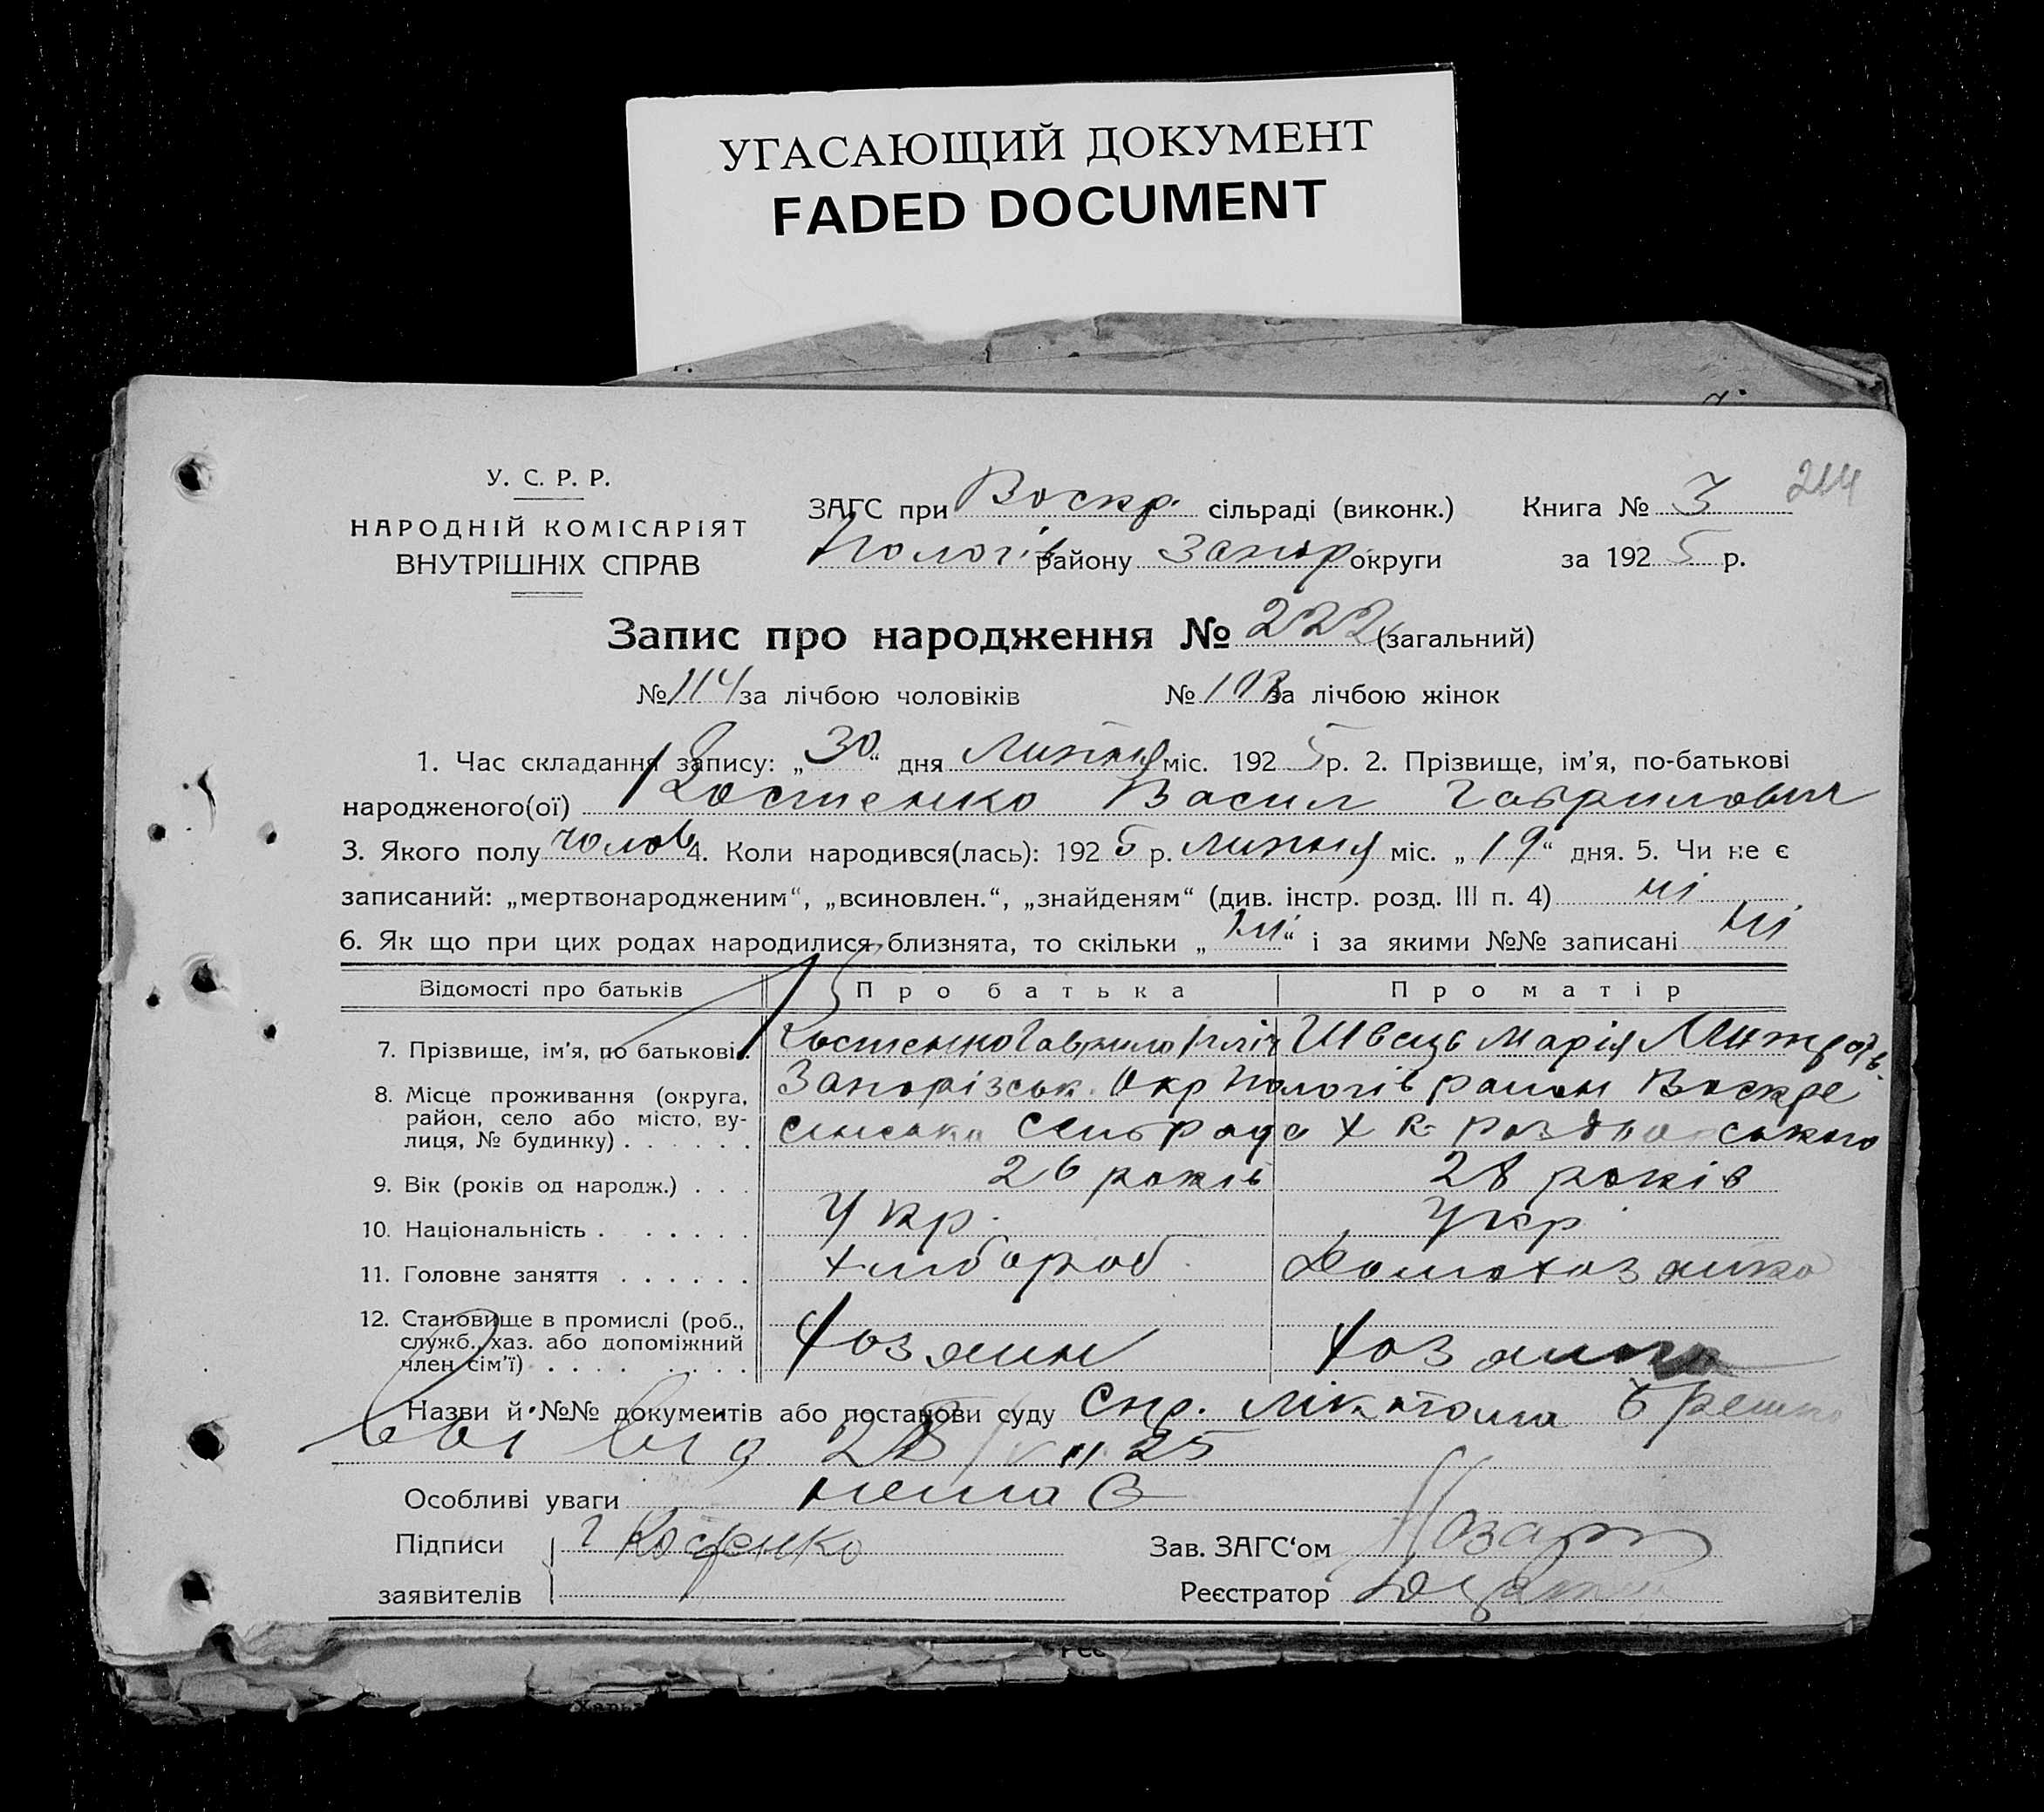 УГАСАЮЩИЙ ДОКУМЕНТ
FADED DOCUMENT
214
У. С. Р. Р.
НАРОДНІЙ КОМІСАРІЯТ
ВНУТРІШНІХ СПРАВ
ЗАГС при Воскр. сільраді (виконк.)
Пологів району Запор округи
Книга № 3
за 1925 р.
Запис про народження № 222 (загальний)
№ 114 за лічбою чоловіків № 108 за лічбою жінок
1. Час складання запису: „30“ дня Липня міс. 1925 р. 2. Прізвище, ім'я, по-батькові
народженого(ої) Костенко Васил Гаврилович
3. Якого полу чолов 4. Коли народився(лась): 1925 р. липня міс. „19“ дня. 5. Чи не є
записаний: „мертвонародженим“, „всиновлен.“, „знайденям“ (див. інстр. розд. III п. 4) ні
6. Як що при цих родах народилися близнята, то скільки „ні“ і за якими №№ записані ні
Відомості про батьків Про батька Про матір
7. Прізвище, ім'я, по батькові. Костенко Гаврило Ілліч Швець Марія
8. Місце проживання (округа, район, село або місто, ву-лиця, № будинку) . . . . . .
Запорізськ. Окр Пологів район Воскре
сенська Сельрада
9. Вік (років од народж.) . . . 26 років 28 років
10. Національність . . . . . . Укр. Укр
11. Головне заняття . . . . . . Хлибороб Домохозяйка
12. Становище в промислі (роб., служб., хаз. або допоміжний член сім'ї) . . . . . . . . Хозяин Хозяйка
Назви й №№ документів або постанови суду Спр.
від 28/VII 25
Особливі уваги немає
Підписи заявителів Г Костенко
Зав. ЗАГС‘ом
Реєстратор